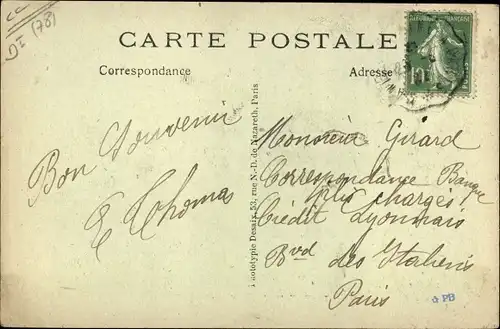 (78)
CARTE POSTALE
Correspondance
Adresse
RÉPUBLIQUE FRANÇAISE
10
Bon Souvenir
E Thomas
Phototypie Desaix, 53, rue N.-D. de Nazareth, Paris
Monsieur Girard
Correspondance Banque
Plis Chargés
Crédit Lyonnais
Bvd des Italiens
Paris
PB